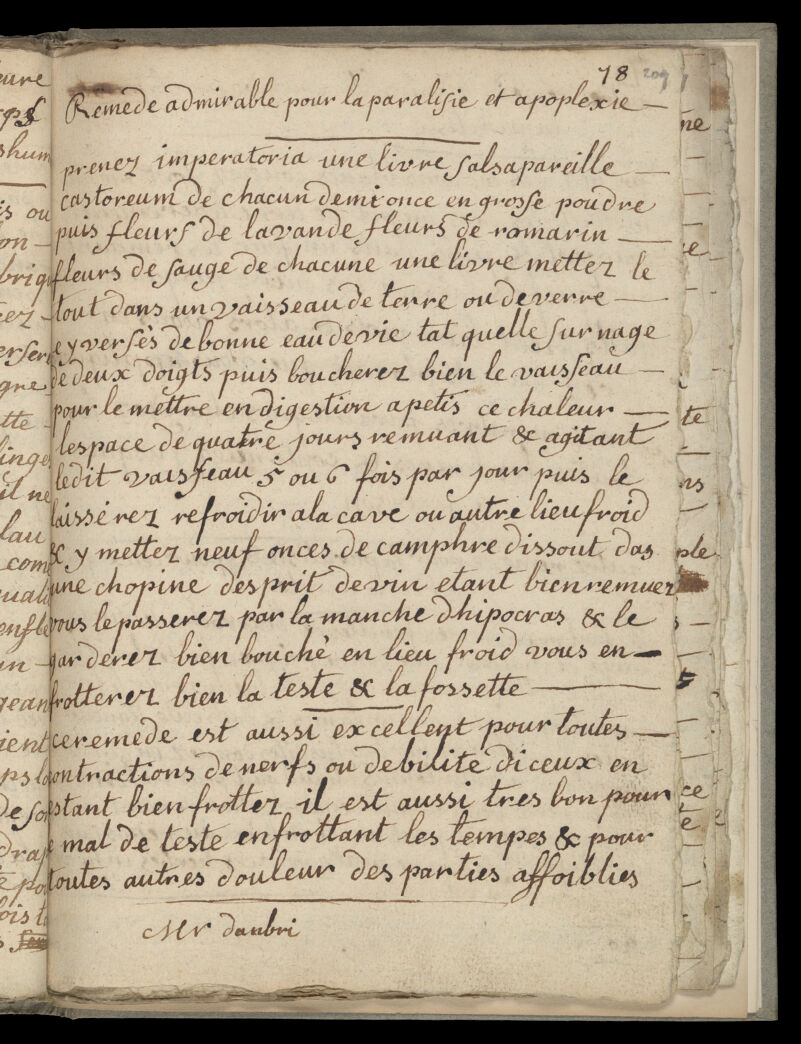 78 209
Remede admirable pour la paralisie et apoplexie —
prenez imperatoria une livre salsapareille —
castoreum de chacun demi once en grosse poudre
puis fleurs de lavande fleurs de romarin —
fleurs de sauge de chacune une livre mettez le
tout dans un vaisseau de terre ou de verre —
e y versés de bonne eau de vie tat quelle surnage
de deux doigts puis boucherez bien le vaisseau —
pour le mettre en digestion a petis ce chaleur —
lespace de quatre jours remuant & agitant
ledit vaisseau 5 ou 6 fois par jour puis le
laissérez refroidir a la cave ou autre lieu froid
& y mettez neuf onces de camphre dissout das
une chopine desprit de vin etant bien remuez
vous le passerez par la manche dhipocras & le
garderez bien bouché en lieu froid vous en —
frotterez bien la teste & la fossette —
ce remede est aussi excellent pour toutes —
contractions de nerfs ou debilité diceux en
estant bien frottez il est aussi tres bon pour
e mal de teste en frottant les tempes & pour
toutes autres douleur des parties affoiblies
Mr danbri